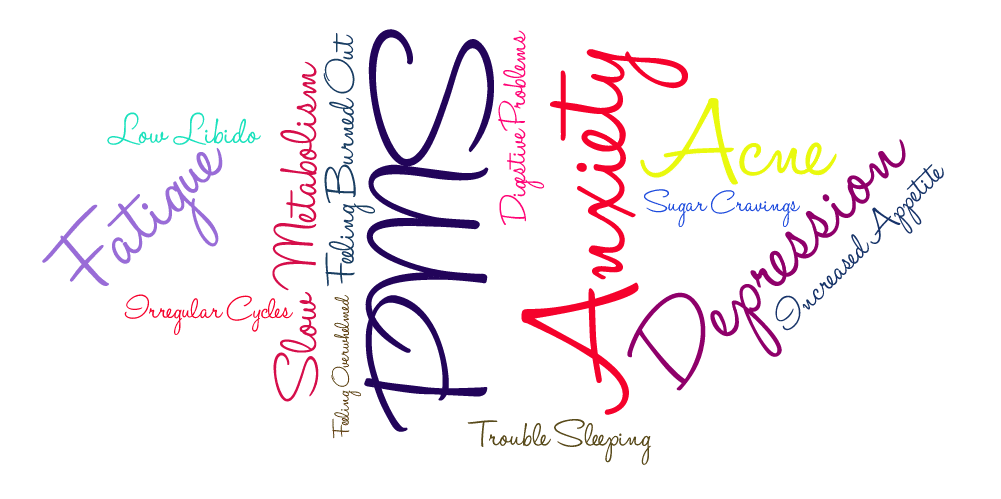 Low Libido
Fatigue
Irregular Cycles
Slow Metabolism
Feeling Burned Out
Feeling Overwhelmed
PMS
Digestive Problems
Anxiety
Acne
Sugar Cravings
Depression
Increased Appetite
Trouble Sleeping